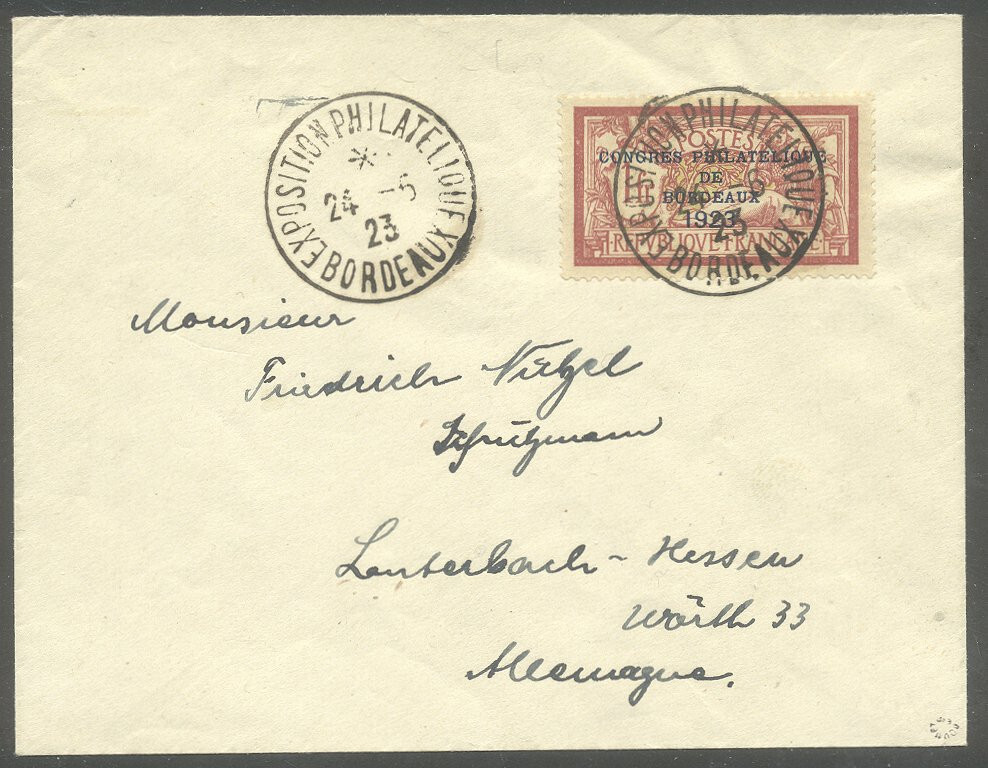 EXPOSITION PHILATELIQUE
*
24 -6
23
BORDEAUX
EXPOSITION PHILATELIQUE
24 -6
23
BORDEAUX
POSTES
CONGRES PHILATELIQUE
DE
BORDEAUX
1923
REPUBLIQUE FRANCAISE
Monsieur
Friedrich
Schutzmann
Lauterbach - Hessen
Wörth 33
Allemagne.